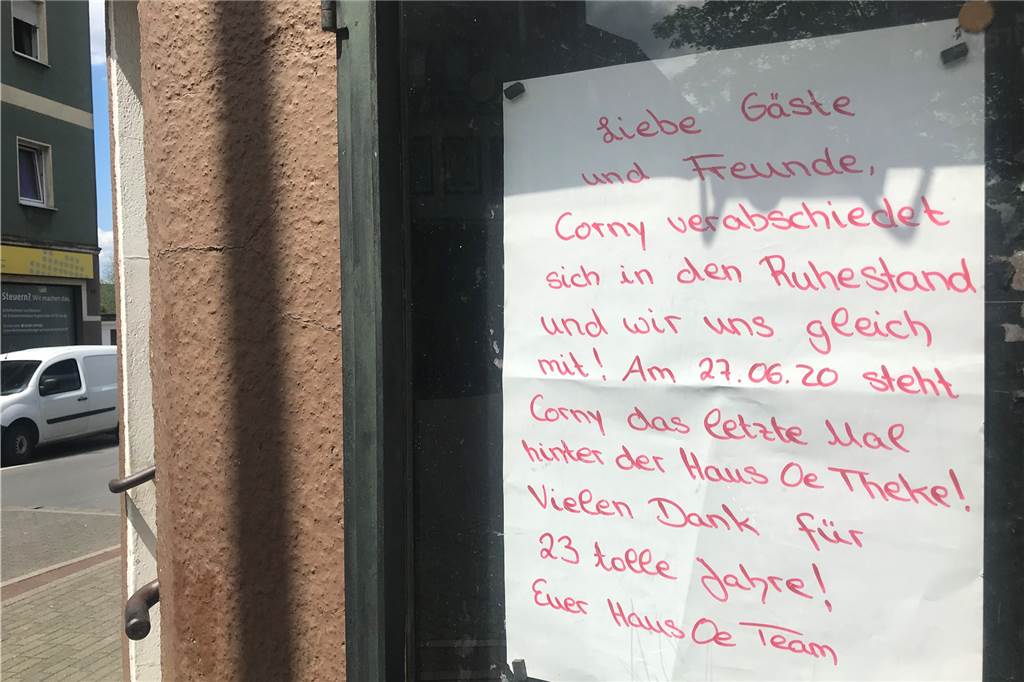 Steuern? Wir machen das.
Liebe Gäste
und Freunde,
Corny verabschiedet
sich in den Ruhestand
und wir uns gleich
mit! Am 27.06.20 steht
Corny das letzte Mal
hinter der Haus Oe Theke!
Vielen Dank für
23 tolle Jahre!
Euer Haus Oe Team